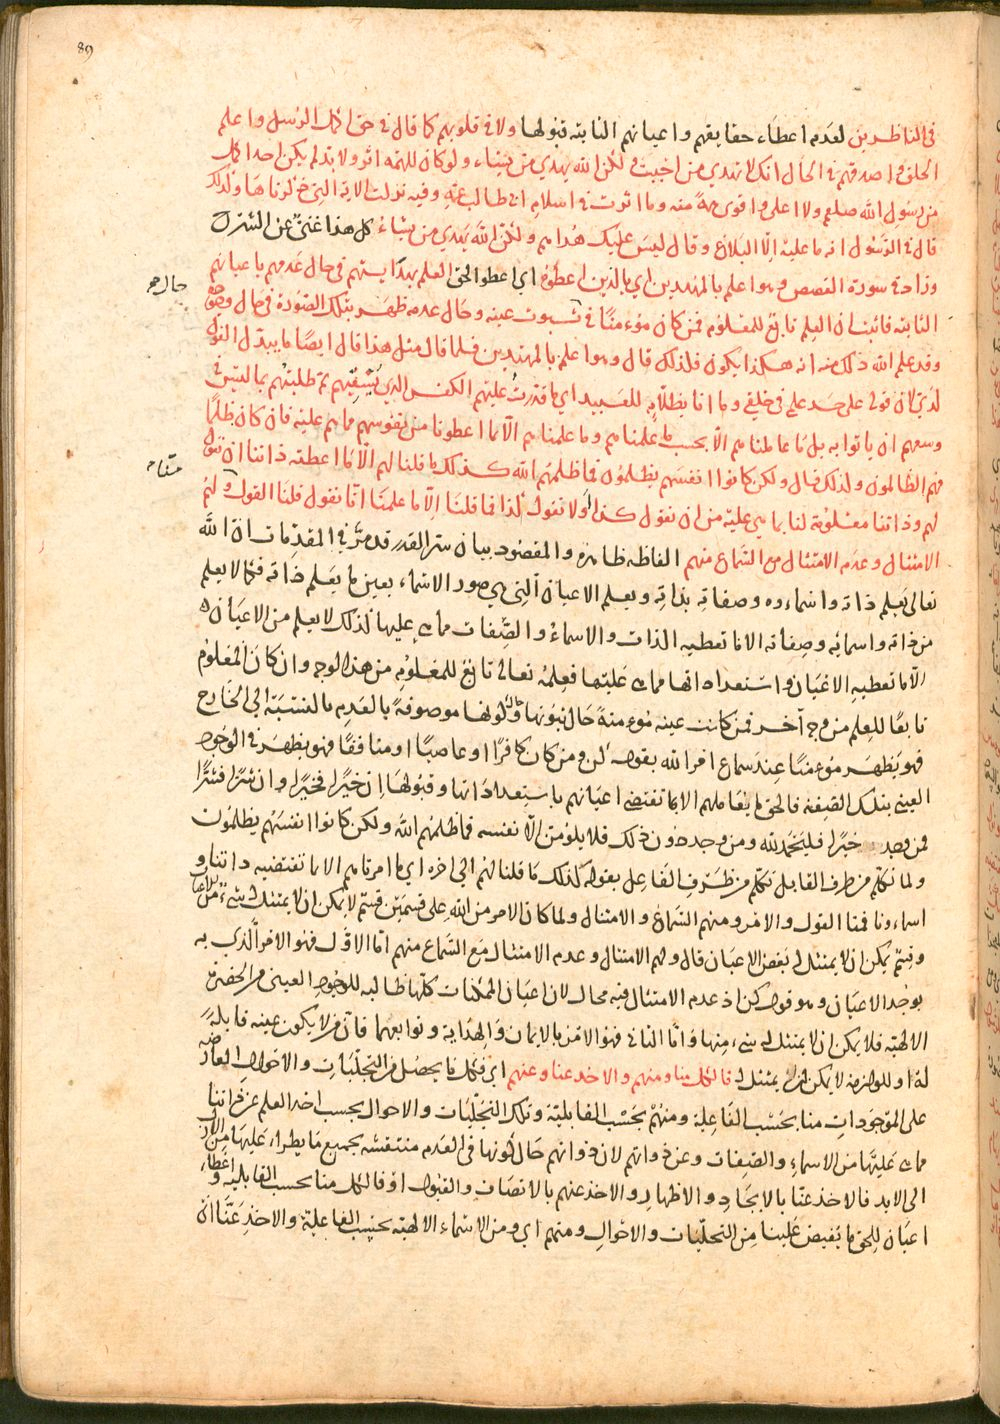 89
فى الناظرين لعدم اعطاء حقايقهم واعيانهم الثابتة قبولها ولا فى قلوبهم كما قال فى حق اكمل الرسل واعلم
الخلق واصدقهم فى الحال انك لا تهدي من احببت ولكن الله يهدي من يشاء ولو كان للهمة اثر ولا بد لم يكن احد اكمل
من رسول الله صلعم ولا اعلى ولا اقوى همة منه وما اثرت فى اسلام ابى طالب عمه وفيه نزلت الاية التى ذكرناها ولذلك
قال فى الرسول انه ما عليه الا البلاغ وقال ليس عليك هداهم ولكن الله يهدي من يشاء كل هذا غنى عن الشرح
وزاد فى سورة القصص وهو اعلم بالمهتدين اي بالذين اعطوه اي اعطوا الحق العلم بهدايتهم فى حال عدمهم باعيانهم
الثابتة فاثبت ان العلم تابع للمعلوم فمن كان مؤمنا فى ثبوت عينه وحال عدمه ظهر بتلك الصورة فى حال وجوده
حال صح
وقد علم الله ذلك منه انه هكذا يكون فلذلك قال وهو اعلم بالمهتدين فلما قال مثل هذا قال ايضا ما يبدل القول
لدي لان قولى على حد علمى فى خلقى وما انا بظلام للعبيد اي ما قدرت عليهم الكفر الذي يشقيهم ثم طلبتهم بما ليس فى
وسعهم ان ياتوا به بل ما عاملناهم الا بحسب ما علمناهم وما علمناهم الا بما اعطونا من نفوسهم مما هم عليه فان كان ظلما
فهم الظالمون ولذلك قال ولكن كانوا انفسهم يظلمون فما ظلمهم الله كذلك ما قلنا لهم الا ما اعطته ذاتنا ان نقول
لهم وذاتنا معلومة لنا بما هى عليه من ان نقول كذا ولا نقول كذا فما قلنا الا ما علمنا انا نقول فلنا القول ولهم
الامتثال وعدم الامتثال مع السماع منهم الفاظه ظاهرة والمقصود بيان سر القدر قد مر فى المقدمات ان الله
تعالى يعلم ذاته واسماءه وصفاته بذاته ويعلم الاعيان التى هى صور الاسماء بعين ما يعلم ذاته فكما لا يعلم
من ذاته واسمائه وصفاته الا ما تعطيه الذات والاسماء والصفات مما هى عليها كذلك لا يعلم من الاعيان
الا ما تعطيه الاعيان واستعداداتها مما هى عليها فعلمه تعالى تابع للمعلوم من هذا الوجه وان كان المعلوم
تابعا للعلم من وجه آخر فمن كانت عينه مؤمنة حال ثبوتها وكونها موصوفة بالعدم بالنسبة الى الخارج
فهو يظهر مؤمنا عند سماع امر الله بقوله كن ومن كان كافرا او عاصيا او منافقا فهو يظهر فى الوجود
العينى بتلك الصفة فالحق ما يعاملهم الا بما تقتضى اعيانهم باستعداداتها وقبولها ان خيرا فخيرا وان شرا فشرا
فمن وجد خيرا فليحمد لله ومن وجد دون ذلك فلا يلومن الا نفسه فما ظلمهم الله ولكن كانوا انفسهم يظلمون
ولما تكلم من طرف القابل تكلم من طرف الفاعل بقوله كذلك ما قلنا لهم الى اخره اي ما امرناهم الا بما تقتضيه ذاتنا و
اسماءنا فمنا القول والامر ومنهم السماع والامتثال ولما كان الامر من الله على قسمين قسم لا يمكن ان لا يمتثل له شىء من الاعيان
وقسم يمكن ان لا يمتثل له بعض الاعيان قال ولهم الامتثال وعدم الامتثال مع السماع منهم اما الاول فهو الامر الذي به
يوجد الاعيان وهو قوله كن اذ عدم الامتثال فيه محال لان اعيان الممكنات كلها طالبه للوجود العينى من الحضرة
الالهية فلا يمكن ان لا يمتثل له شىء منها واما الثانى فهو الامر بالايمان والهداية وتوابعهما فان من لا يكون عينه قابلة
له او للوازمه لا يمكن ان يمتثل له فالكل منا ومنهم والاخذ عنا وعنهم اي فكل ما يحصل من التجليات والاحوال العارضة
على الموجودات منا بحسب الفاعلية ومنهم بحسب القابلية وتلك التجليات والاحوال بحسب اخذ العلم عن ذاتنا
مما هى عليها من الاسماء والصفات وعن ذواتهم لان ذواتهم حال كونها فى العدم منتقشة بجميع ما يطراء عليها من الازل
الى الابد فالاخذ عنا بالايجاد والاظهار والاخذ عنهم بالاتصاف والقبول او فالكل منا بحسب القابلية واعطاء
اعيان للحق ما يفيض علينا من التجليات والاحوال ومنهم اي ومن الاسماء الالهية بحسب الفاعلية والاخذ عنا ان